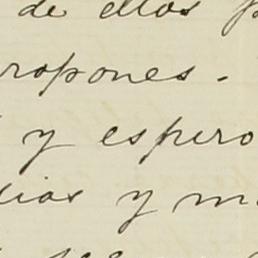 de ellos p
ropones.
y espero
ias y m